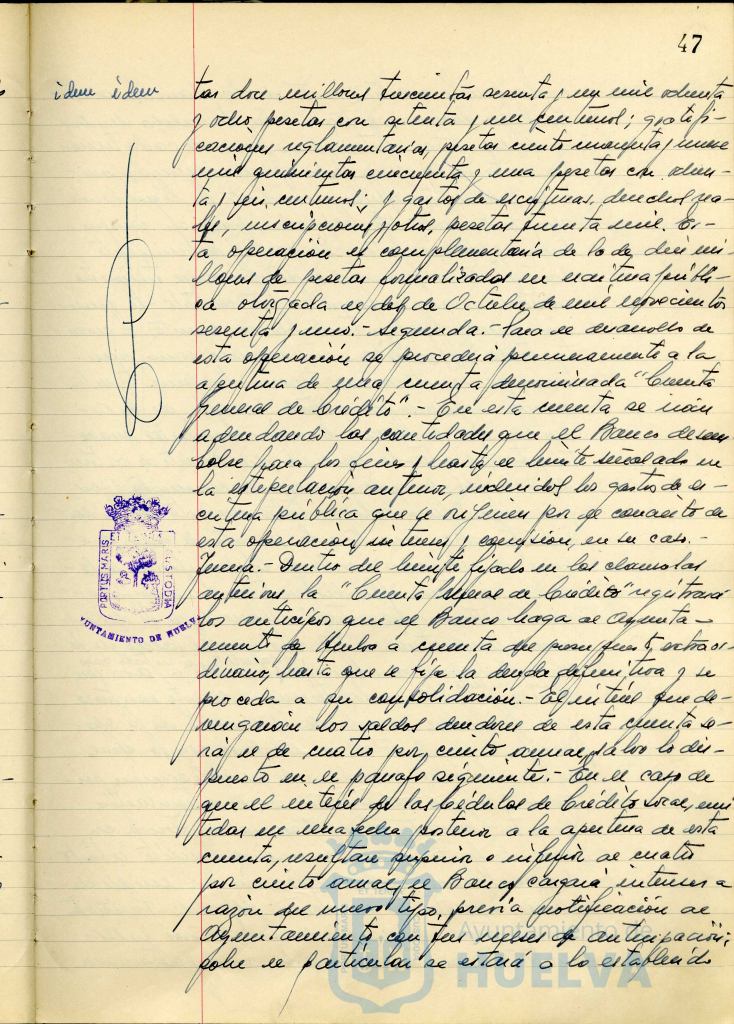 47
idem idem
tas doce millones trescientas sesenta y un mil ochenta
y ocho pesetas con setenta y un centimos; gratifi-
caciones reglamentarias, pesetas ciento noventa y nueve
mil quinientas cincuenta y una pesetas con ochen-
ta y seis centimos; y gastos de escrituras, derechos rea-
les, inscripciones y otros, pesetas treinta mil. Es-
ta operación es complementaria de la de mi-
llones de pesetas formalizadas en escritura públi-
ca otorgada el de Octubre de mil novecientos
sesenta y uno.- Segunda.- Para el desarrollo de
esta operación se procederá primeramente a la
apertura de una cuenta denominada "Cuenta
General de Crédito".- En esta cuenta se irán
adeudando las cantidades que el Banco desem
bolse para los fines y hasta el límite señalado en
la estipulación anterior, incluidos los gastos de es-
critura pública que se originen por de
esta operación, intereses y comisión, en su caso.-
Dentro del límite fijado en las clausulas
anteriores, la "Cuenta General de Crédito" registrará
los anticipos que el Banco haga al Ayunta-
miento de Huelva a cuenta del presupuesto extraor-
dinario, hasta que se fije la deuda definitiva y se
proceda a su consolidación.- El interés que de-
vengarán los saldos deudores de esta cuenta se-
rá el de cuatro por ciento anual, salvo lo dis-
puesto en el párrafo siguiente.- En el caso de
que el interés de las Cédulas de Crédito Local, emi
tidas en una fecha posterior a la apertura de esta
cuenta, resultare superior o inferior al cuatro
por ciento anual, el Banco cargará intereses a
razón del nuevo tipo, previa notificación al
Ayuntamiento con tres meses de anticipación;
sobre el particular se estará a lo establecido
PORTUS MARIS
CUSTODIA
AYUNTAMIENTO DE HUELVA
Ayuntamiento de
HUELVA